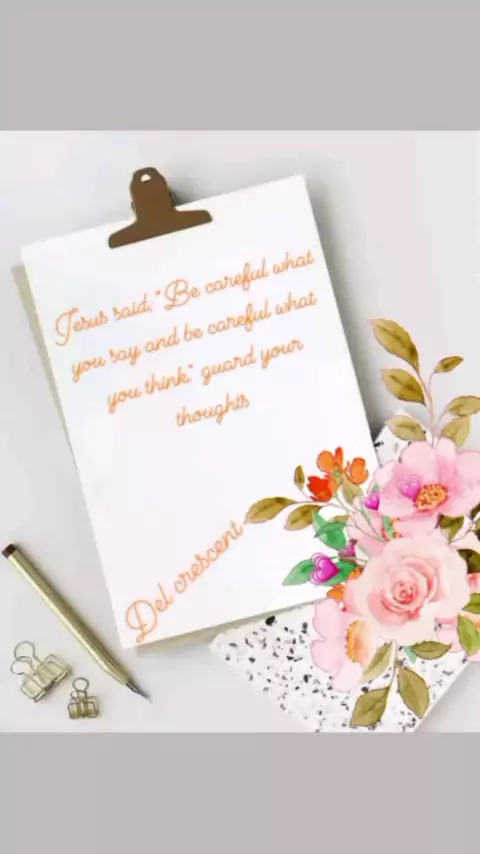 Jesus said, "Be careful what
you say and be careful what
you think." guard your
thoughts
Del crescent